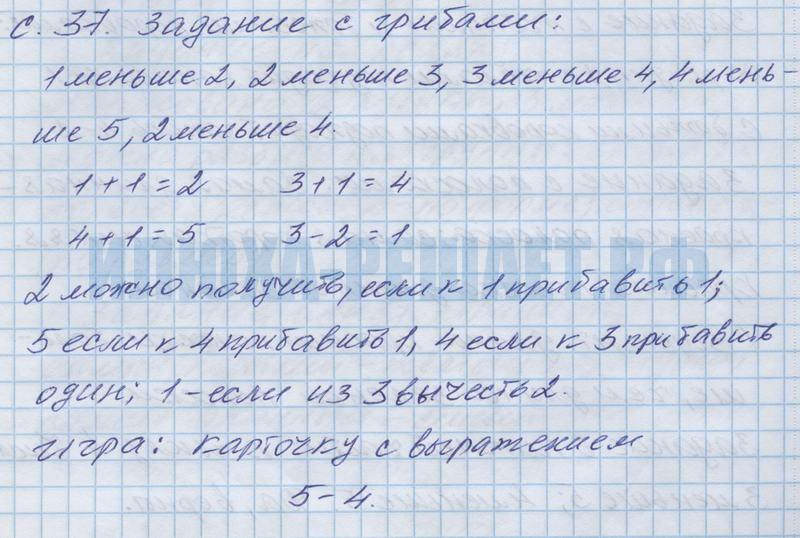 с. 37. Задание с грибами:
1 меньше 2, 2 меньше 3, 3 меньше 4, 4 мень-
ше 5, 2 меньше 4.
1 + 1 = 2 3 + 1 = 4
4 + 1 = 5 3 - 2 = 1
ИЛЮХА РЕШАЕТ.РФ
2 можно получить, если к 1 прибавить 1;
5 если к 4 прибавить 1, 4 если к 3 прибавить
один; 1 - если из 3 вычесть 2.
Игра: карточку с выражением
5 - 4.